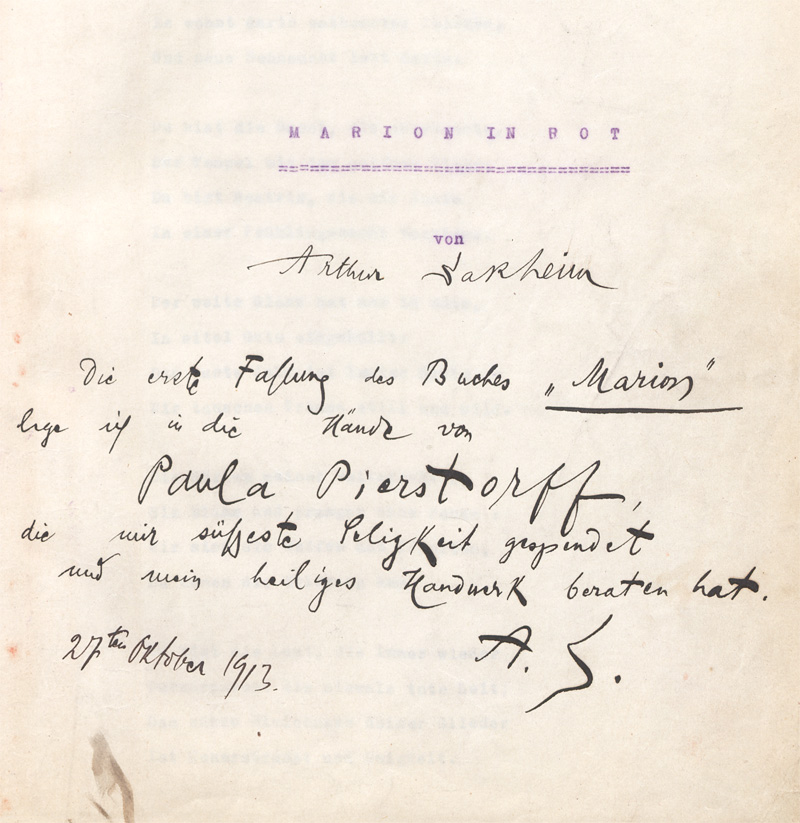 MARION IN ROT
von
Arthur Sakheim
Die erste Fassung des Buches „Marion"
lege ich in die Hände von
Paula Pierstorff,
die mir süsseste Seligkeit gespendet
und mein heiliges Handwerk beraten hat.
27ten Oktober 1913.
A. S.